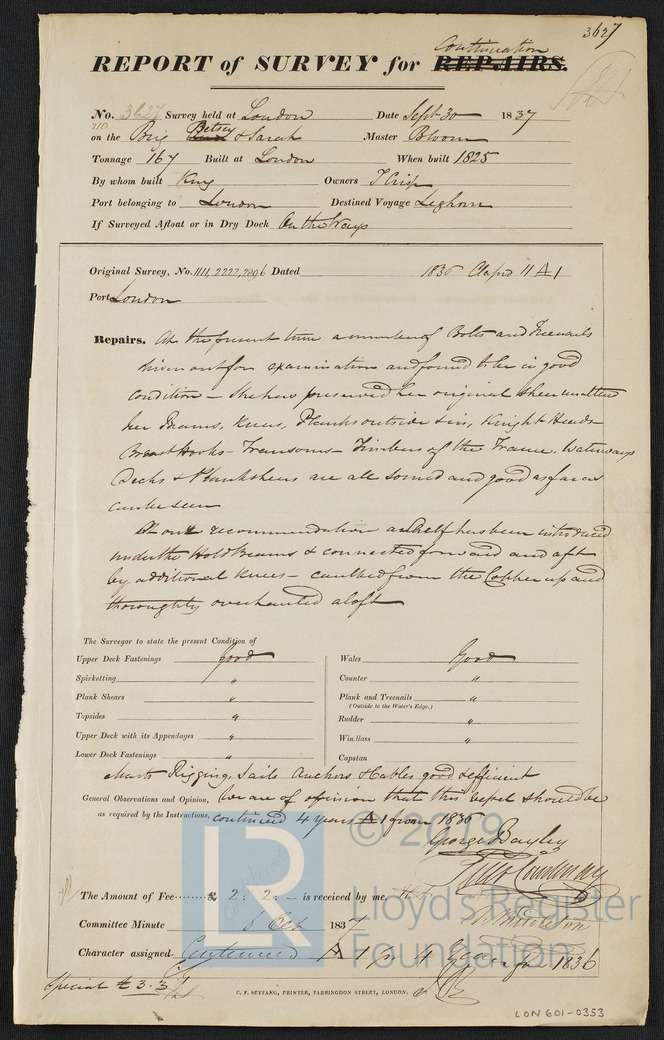 3627
Continuation
REPORT of SURVEY for REPAIRS.
No. 3627 Survey held at London Date Sept 30 1837
210
on the Brig Betsey & Sarah Master Bloom
Tonnage 167 Built at London When built 1825
By whom built King Owners J Crisp
Port belonging to London Destined Voyage Leghorn
If Surveyed Afloat or in Dry Dock On the Ways
Original Survey, No. 1111, 2222, 2896 Dated 1836 Classed 11 A 1
Port London
Repairs. At the present time a number of Bolts and Treenails
driven out for examination and found to be in good
condition – She has preserved her original sheer unaltered
her Beams, Knees, Planks outside & in, Knight Heads
Breast Hooks – Transoms – Timbers of the Frame, Waterways
Decks & Planksheers are all sound and good as far as
can be seen
At our recommendation a shelf has been introduced
under the Hold Beams & connected forward and aft
by additional Knees – caulked from the Copper up and
thoroughly overhauled aloft
The Surveyor to state the present Condition of
Upper Deck Fastenings good
Spirketting "
Plank Shears "
Topsides "
Upper Deck with its Appendages "
Lower Deck Fastenings "
Wales Good
Counter "
Plank and Treenails "
(Outside to the Water's Edge.)
Rudder "
Windlass "
Capstan
Masts Rigging, Sails Anchors & Cables good & efficient
General Observations and Opinion, We are of opinion that this vessel should be
as required by the Instructions, continued 4 years A 1 from 1836
George Bayley
The Amount of Fee £ 2: 2: – is received by me
Committee Minute 6 Oct 1837
Character assigned Continued A 1 for 4 Years from 1836
Special £ 3. 3
C. F. SEYFANG, PRINTER, FARRINGDON STREET, LONDON.
LON 601-0353
LR
© 2019
Lloyd's Register
Foundation